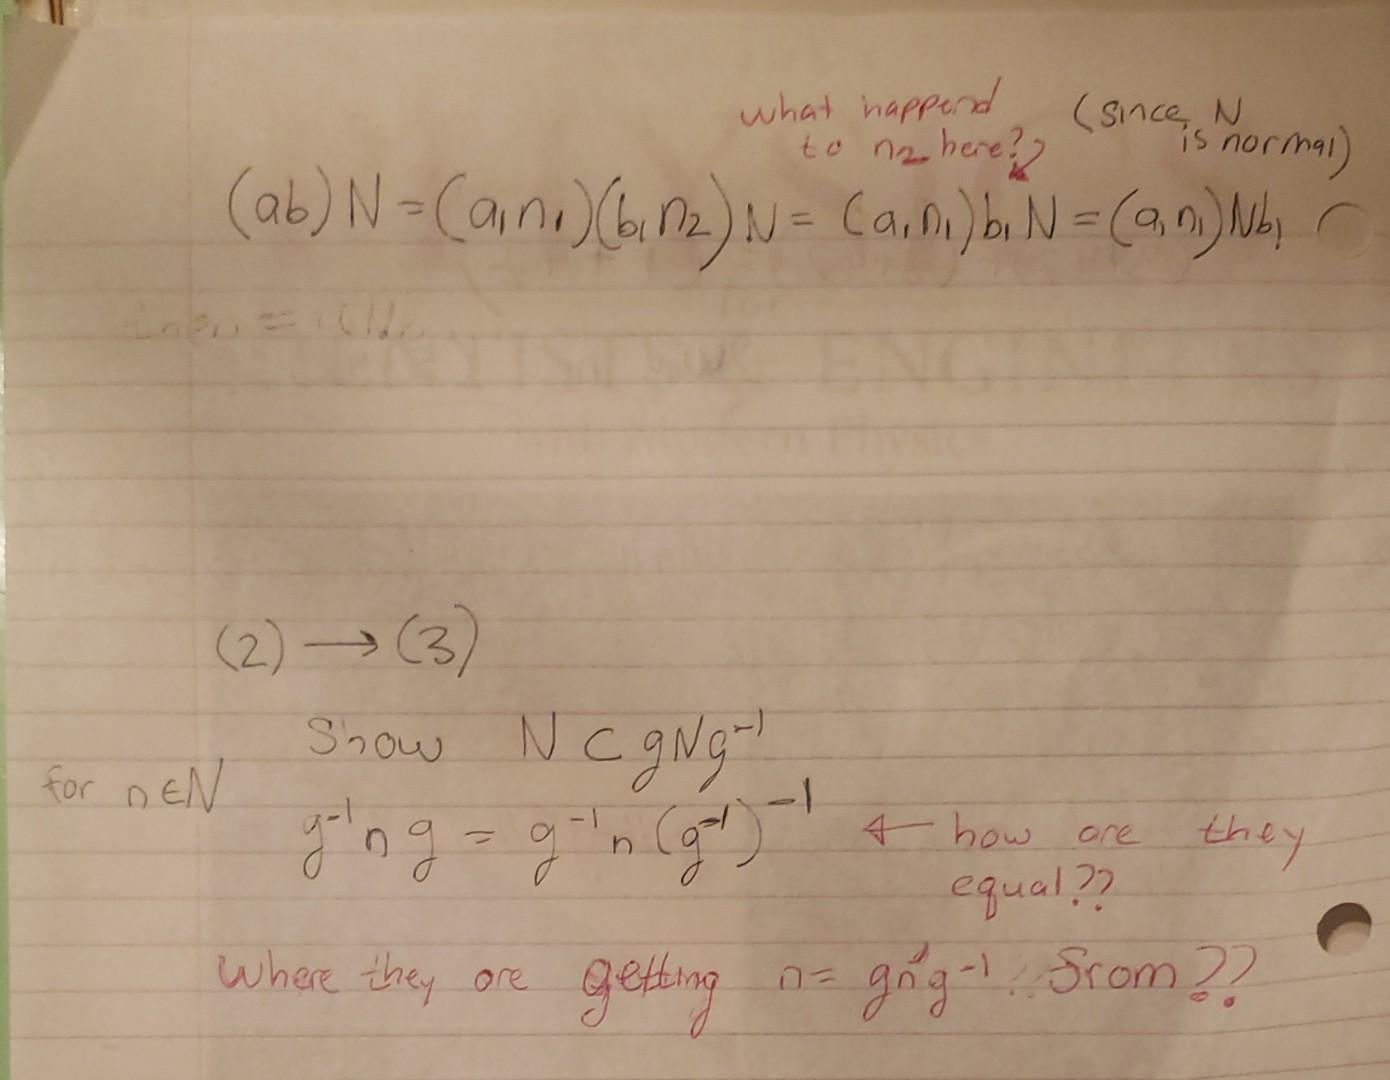 what happend (since N
to n₂ here? is normal)
(ab)N = (a₁n₁)(b₁n₂)N = (a₁n₁)b₁N = (a₁n₁)Nb₁
then =
(2) → (3)
Show N ⊂ gNg⁻¹
for n∈N
g⁻¹ng = g⁻¹n(g⁻¹)⁻¹ ← how are they
equal??
Where they are getting n = gn'g⁻¹ from??